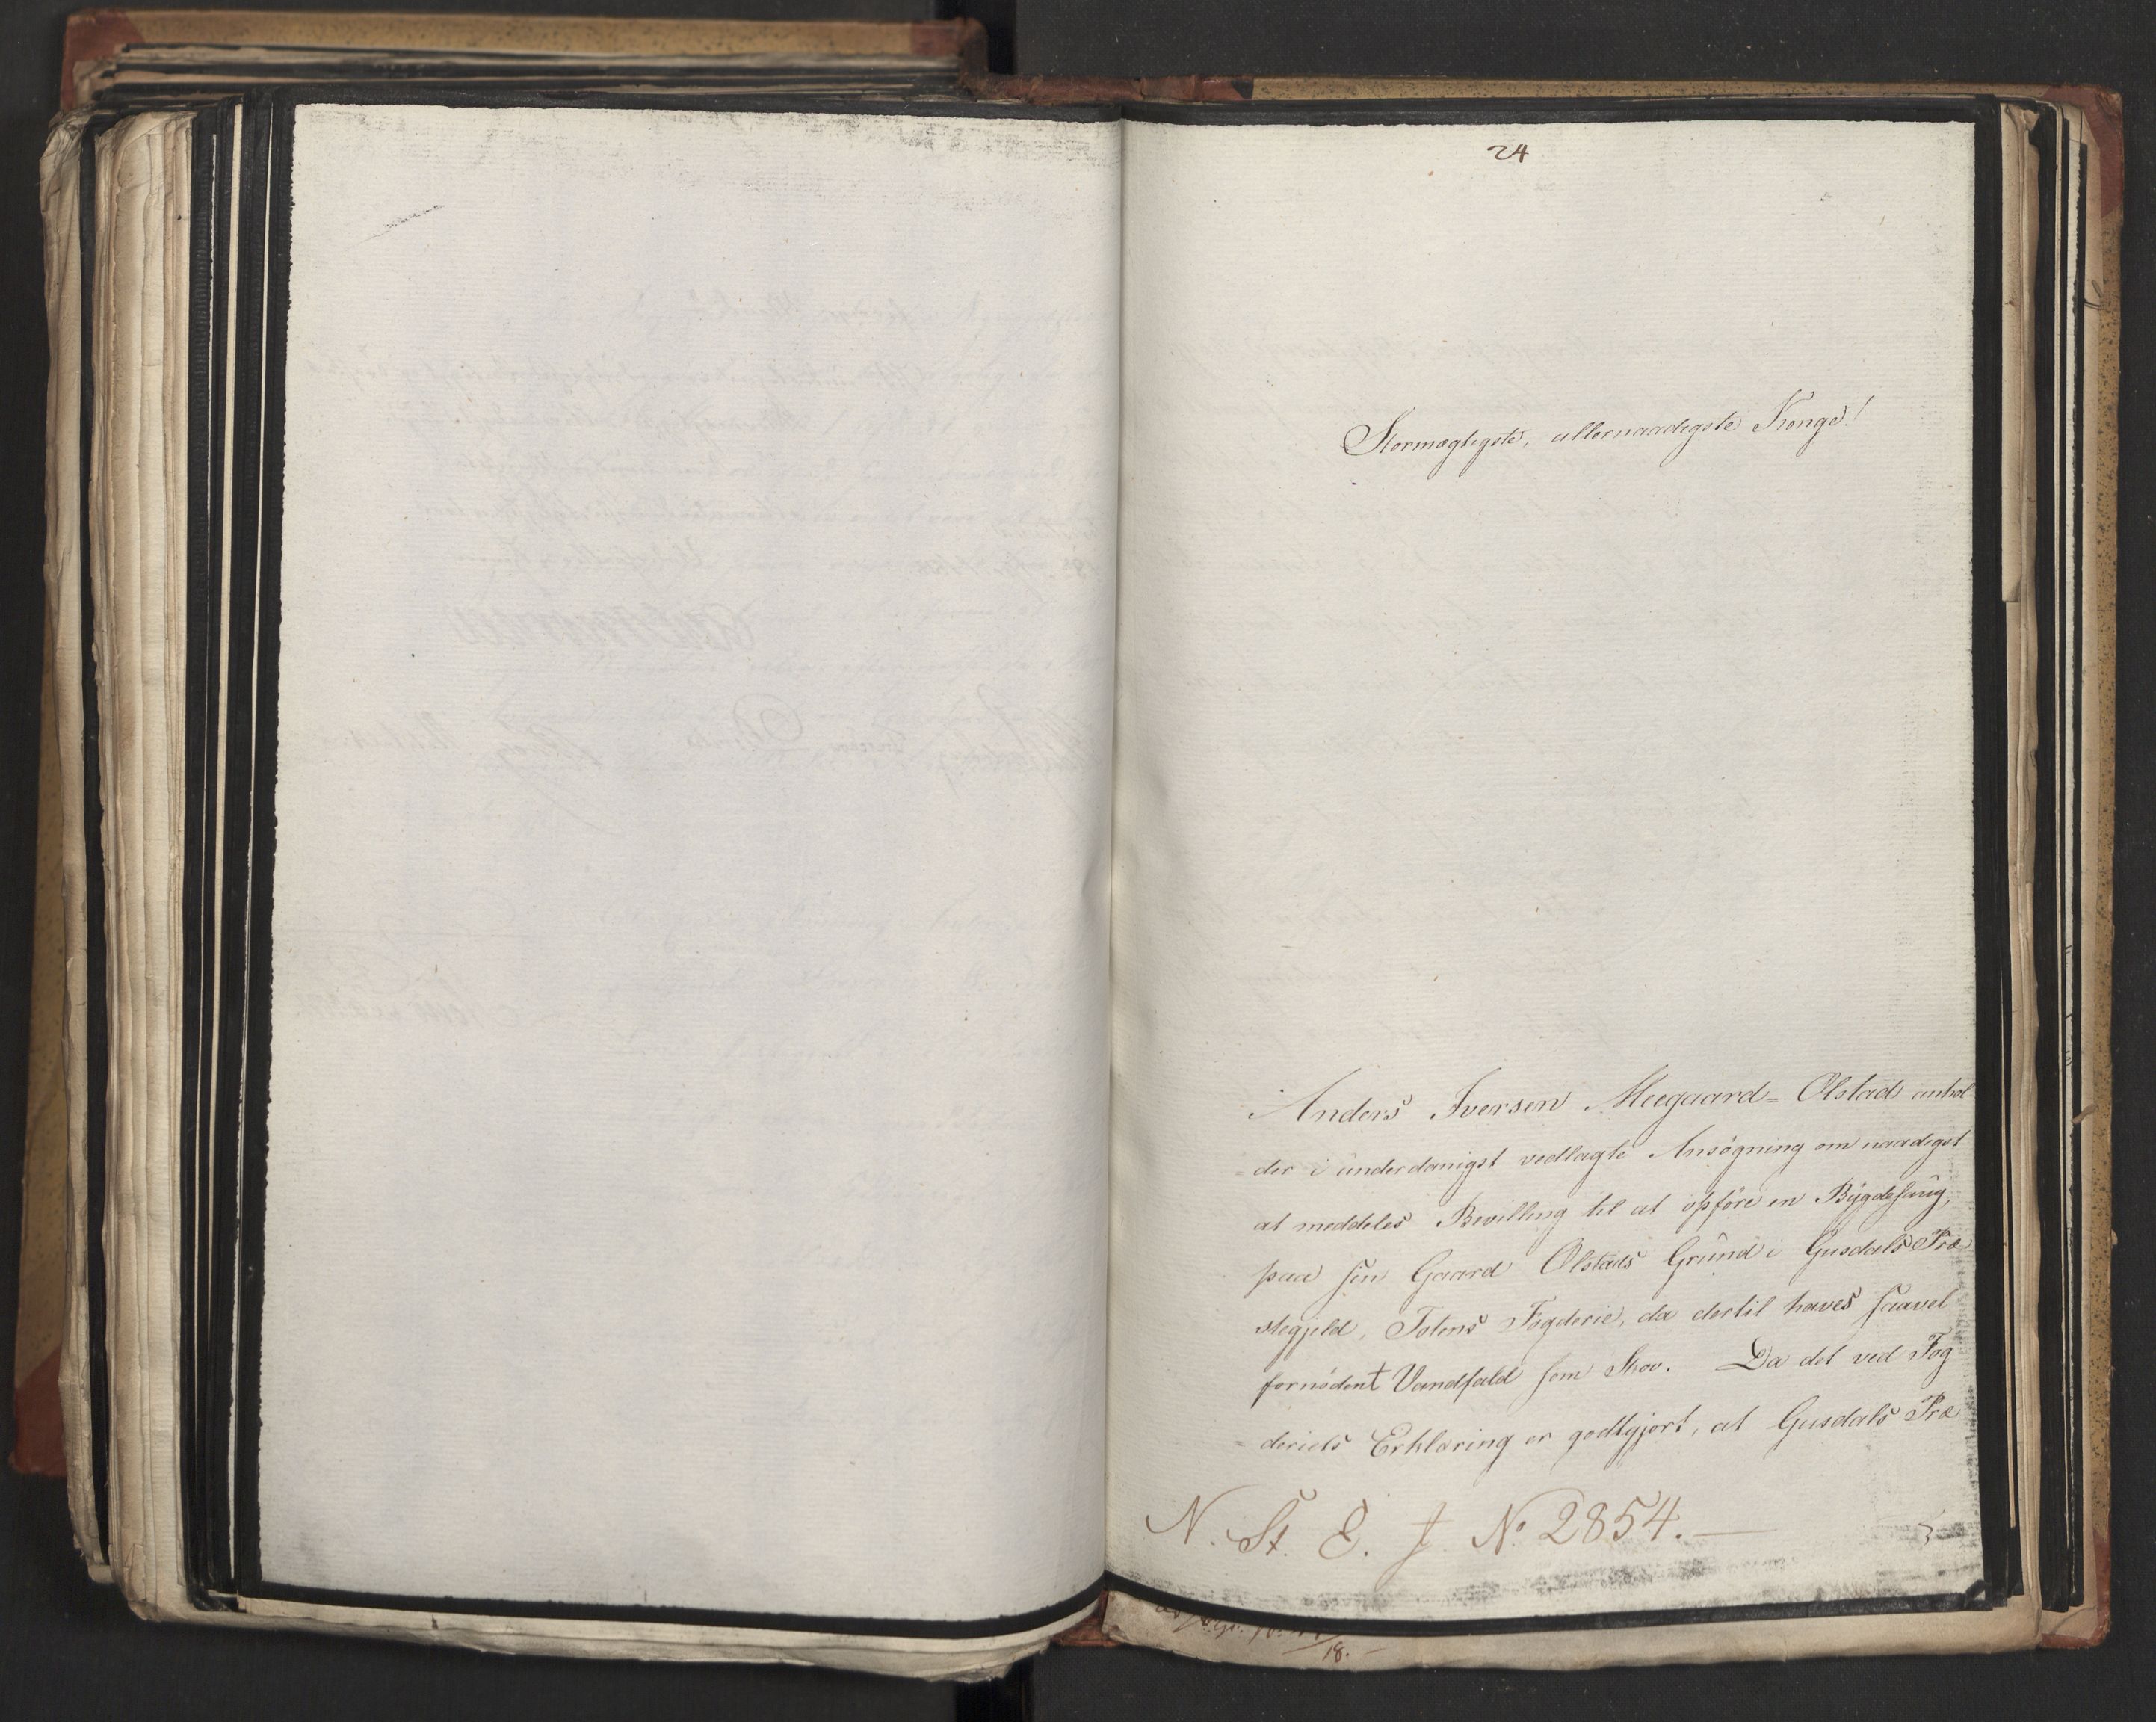 24
Stormægtigste, allernaadigste Konge!
Anders Iversen Meegaard=Olstad anhol
der i ûnderdanigst vedlagte Ansøgning om naadigst
at meddeles Bevilling til at opføre en Bÿgdesaûg,
paa sin Gaard Olstads Grûnd i Gusdals Præ
stegjeld, Totens Fogderie, da dertil haves saavel
fornødent Vandfald som Skov. Da det ved Fog
deriets Erklæring er godtgjort, at Gusdals Præ
N. St. E. J. No. 2854.
18.